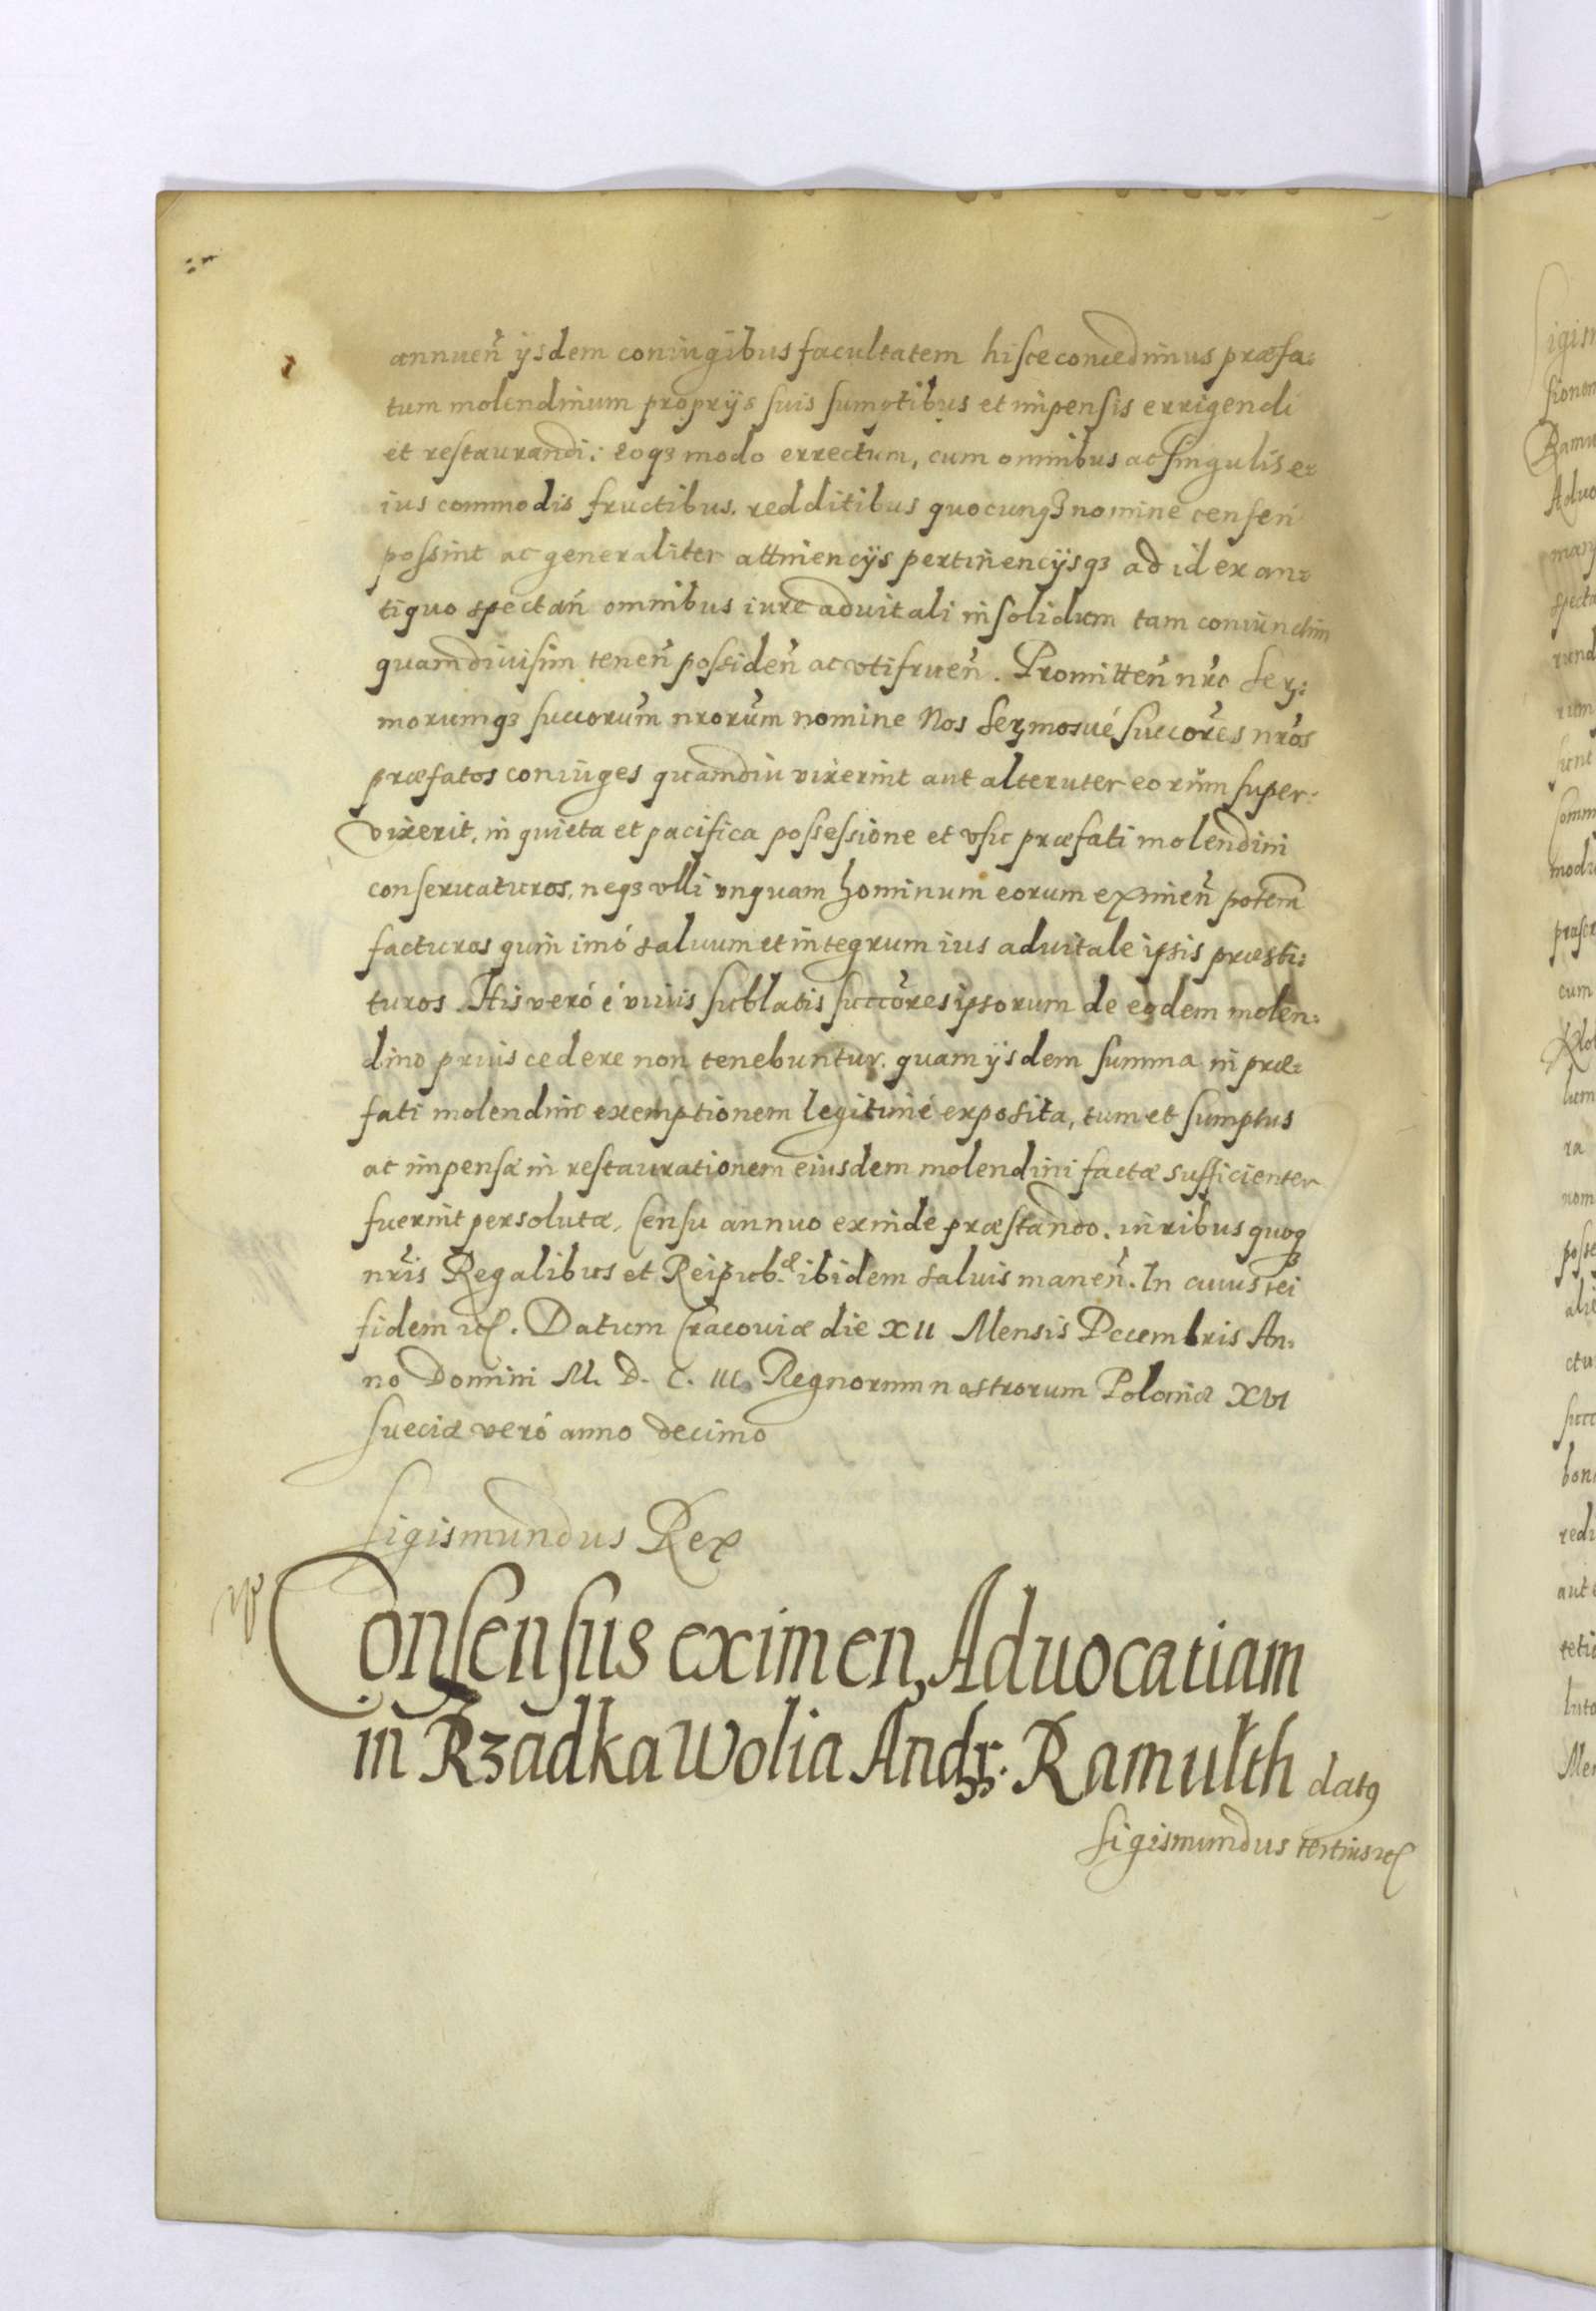 annueñ ijsdem coniugibus facultatem hisce concedimus præfa:
tum molendinum proprijs suis sumptibus et impensis errigendi
et restaurandi: eoq3 modo errectum, cum omnibus ac singulis e:
ius commodis fructibus. redditibus quocunq3 nomine censeri
possint ac generaliter attinencijs pertinencijsq3 ad id ex an:
tiquo spectań omnibus iure aduitali in solidum tam coniunctim
quam diuisim teneñ possideñ ac vtifrueñ. Promitteñ nr̃o Ser:
morumq3 succorũm nrorũm nomine Nos Sermosué succorẽs nrõs
præfatos coniuges quamdiu vixerint aut alteruter eorum super:
vixerit, in quieta et pacifica possessione et vsu præfati molendini
conseruaturos, neq3 vlli vnquam hominum eorum eximeñ potem̃
facturos quin imó saluum et integrum ius aduitale ipsis præsti:
turos. His veró é viuis sublatis succõres ipsorum de eodem molen:
dino prius cedere non tenebuntur. quam ijsdem summa in præ:
fati molendini exemptionem legitimé exposita, tum et sumptus
ac impensæ in restaurationem eiusdem molendini factæ sufficienter
fuerint persolutæ, Censu annuo exinde præstando. iuribus quoq3
nr̃is Regalibus et Reipub.æ ibidem saluis maneñ. In cuius rei
fidem etc. Datum Cracouiæ die XII Mensis Decembris An:
no Domini M. D. C. III. Regnorum nostrorum Poloniæ XVI
Sueciæ veró anno decimo
Sigismundus Rex
Consensus eximen, Aduocatiam
in Rzadka Wolia Andr. Ramulth dat9
Sigismundus tertius etc